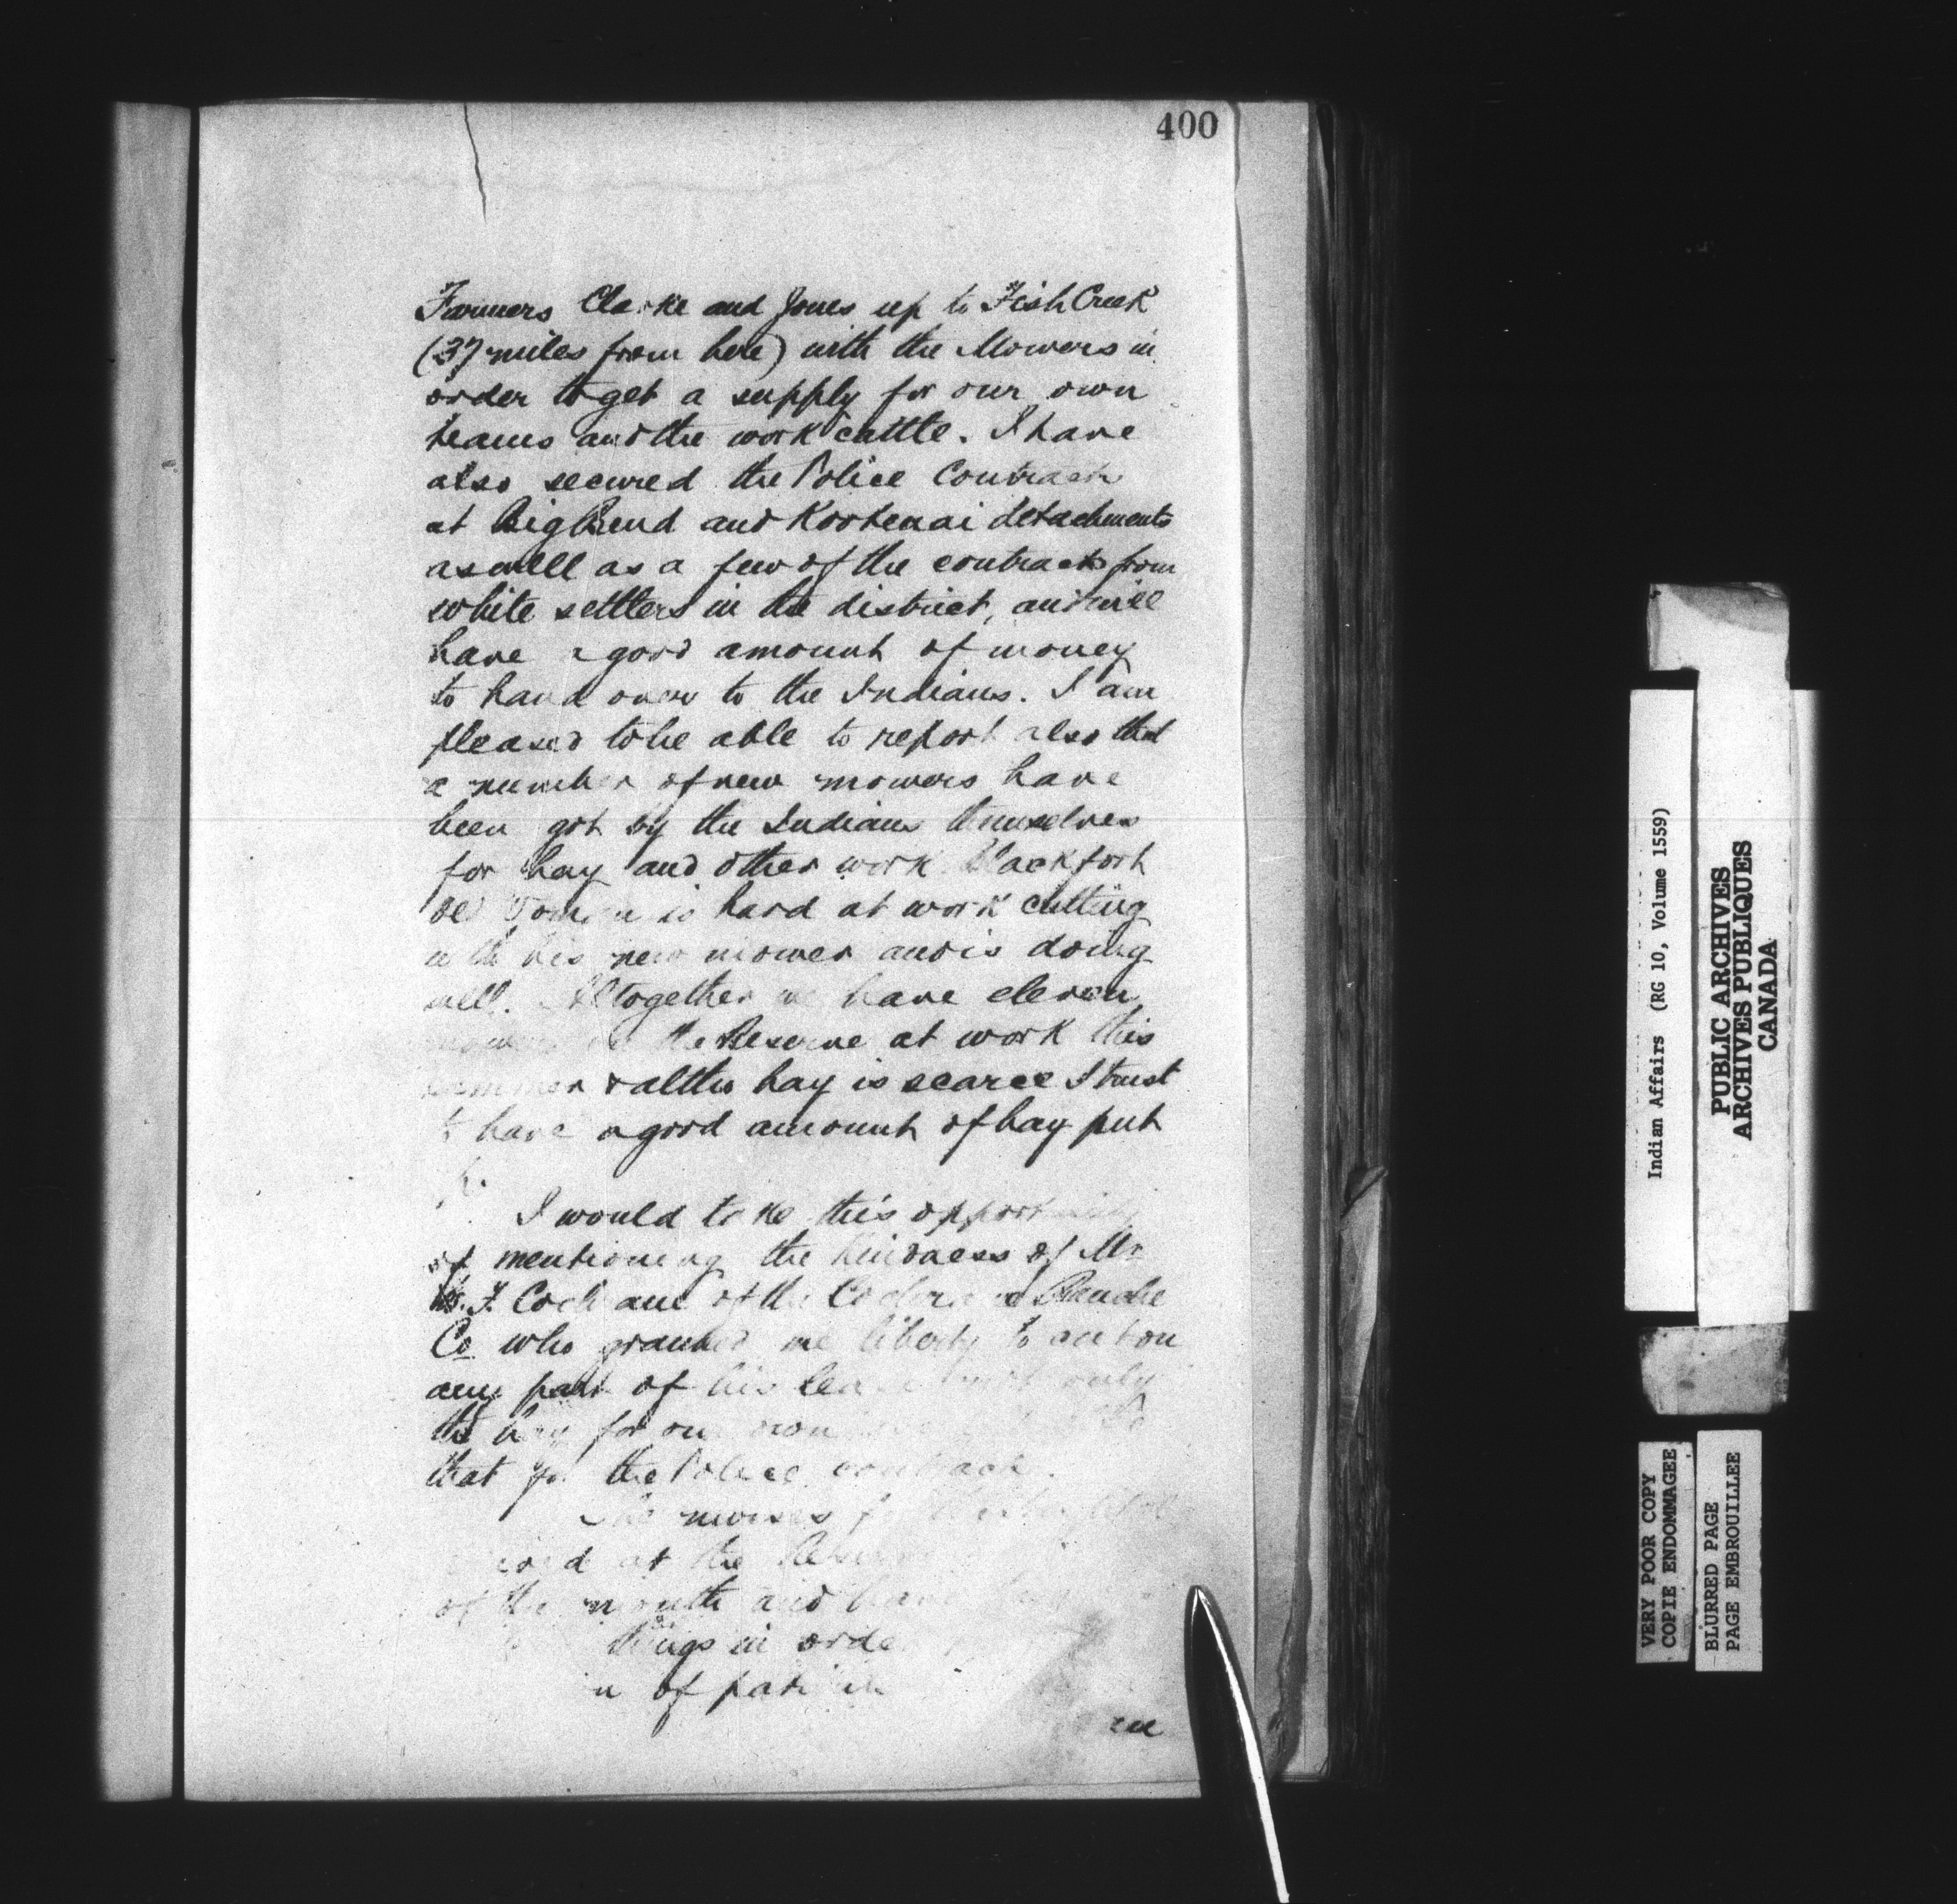 400
Farmers Clarke and Jones up to Fish Creek
(37 miles from here) with the Mowers in
order to get a supply for our own
teams and the work cattle. I have
also secured the Police Contracts
at Big Bend and Kootenai detachments
as well as a few of the contracts from
white settlers in the district, and will
have a good amount of money
to hand over to the Indians. I am
pleased to be able to report also that
a number of new mowers have
been got by the Indians themselves
for hay and other work. Blackfoot
Old Woman is hard at work cutting
with his new mower and is doing
well. Altogether we have eleven
mowers on the Reserve at work this
summer & altho hay is scarce I trust
to have a good amount of hay put
up.
I would take this opportunity
of mentioning the kindness of Mr
W. F. Cochrane of the Cochrane Ranche
Co who granted me liberty to cut on
any part of his lease not only
the hay for our own
that for the Police contract.
The nurses for
at the
of the month and have
things in order
of
Indian Affairs (RG 10, Volume 1559)
PUBLIC ARCHIVES
ARCHIVES PUBLIQUES
CANADA
VERY POOR COPY
COPIE ENDOMMAGEE
BLURRED PAGE
PAGE EMBROUILLEE